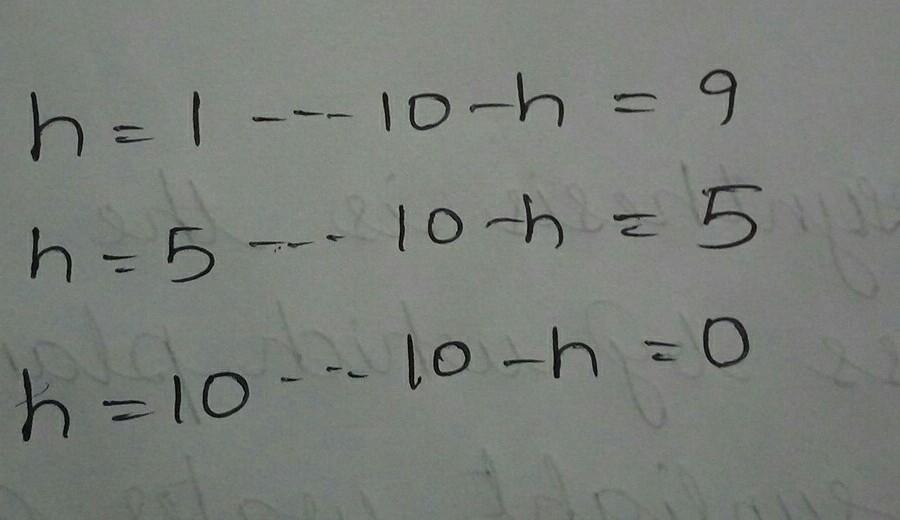 h = 1 ---- 10 - h = 9
h = 5 ---- 10 - h = 5
h = 10 ---- 10 - h = 0